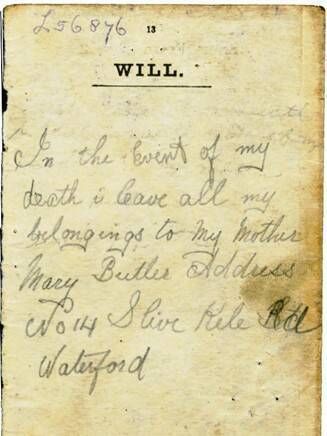 L56876
13
WILL.
In the Event of my
death i leave all my
belongings to My Mother
Mary Butler Address
No 14 Slive Kele Rd
Waterford